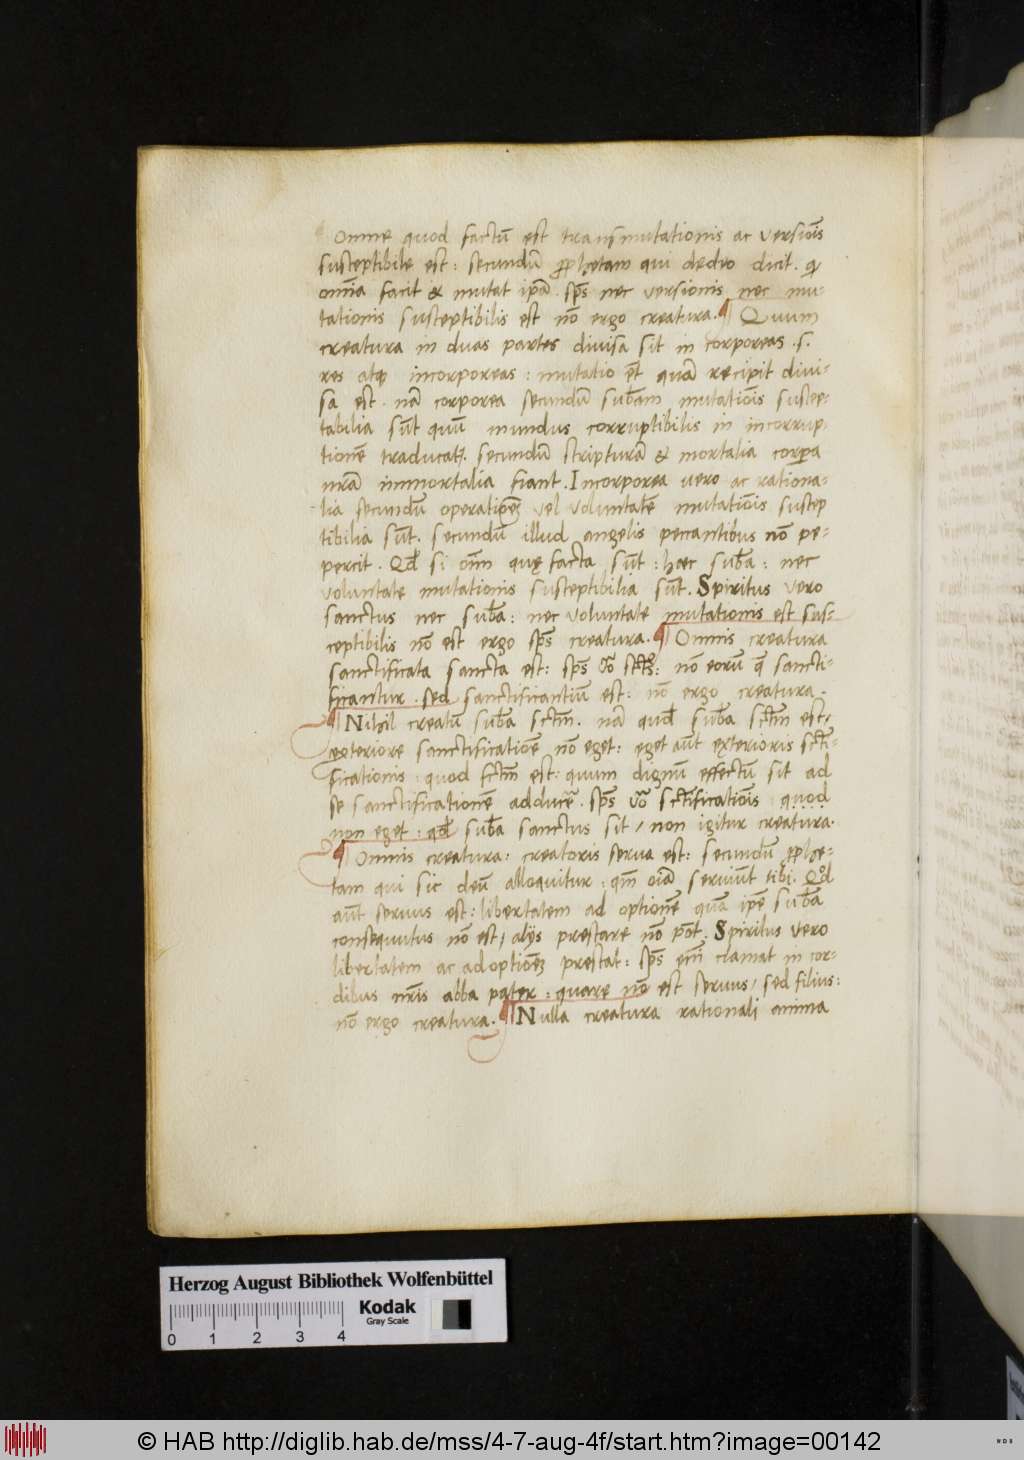 Omne quod factū est transmutationis ac versiōis
susceptibile est : secundū ꝓphetam qui dedvo dicit . qui
omīa facit & mutat ipā . sp̄s nec versionis nec mu-
tationis susceptibilis est nō ergo creatura . ¶ Quum
creatura in duas partes divisa sit in corporeas .s.
res atqꝫ incorporeas : mutatio ēt quā recipit divi-
sa est . nā corporea secundū sub̄am mutatiōis suscep-
tabilia sūt quū mundus corruptibilis in incorrup-
tionē traducat᷑ . secundū scripturā & mortalia corpa
nr̄am immortalia fiant . Incorporea vero ac rationa-
lia secundū operatiōeꝫ vel voluntatē mutatiōis suscep
tibilia sūt . secundū illud angelis peccantibus nō pe-
percit . Qd̄ si om̄ quę facta sūt : haec sub̄a : nec
voluntate mutationis susceptibilia sūt . Spiritus vero
sanctus nec sub̄a : nec voluntate mutationis est sus-
ceptibilis nō est ergo sp̄s creatura . ¶ Omnis creatura
sanctificata sancta est : sp̄s v̄o sct̄s : nō eorū q̄ sancti-
ficantur . sed sanctificantiū est : nō ergo creatura .
¶ Nihil creatū sub̄a sct̄m . nā quod sub̄a sct̄m est /
exteriore sanctificatiōe nō eget : eget aūt exterioris sct̄i-
ficationis : quod fct̄m est : quum dignū effectū sit ad
se sanctificationē adducē . sp̄s v̄o sct̄ificatiōis quod
non eget : qd̄ sub̄a sanctus sit / non igitur creatura .
¶ Omnis creatura : creatoris serva est : secundū ꝓphe-
tam qui sic deū alloquitur : qm̄ oīa serviūt tibi . Qd̄
aūt servus est : libertatem ad optionē quā ipē sub̄a
consequutus nō est / alijs prestare nō pōt . Spiritus vero
libertatem ac adoptiōeꝫ prestat : sp̄s em̄ clamat in cor-
dibus nr̄is abba pater : quare nō est servus / sed filius :
nō ergo creatura . ¶ Nulla creatura rationali anima
Herzog August Bibliothek Wolfenbüttel
Kodak
Gray Scale
0 1 2 3 4
© HAB http://diglib.hab.de/mss/4-7-aug-4f/start.htm?image=00142